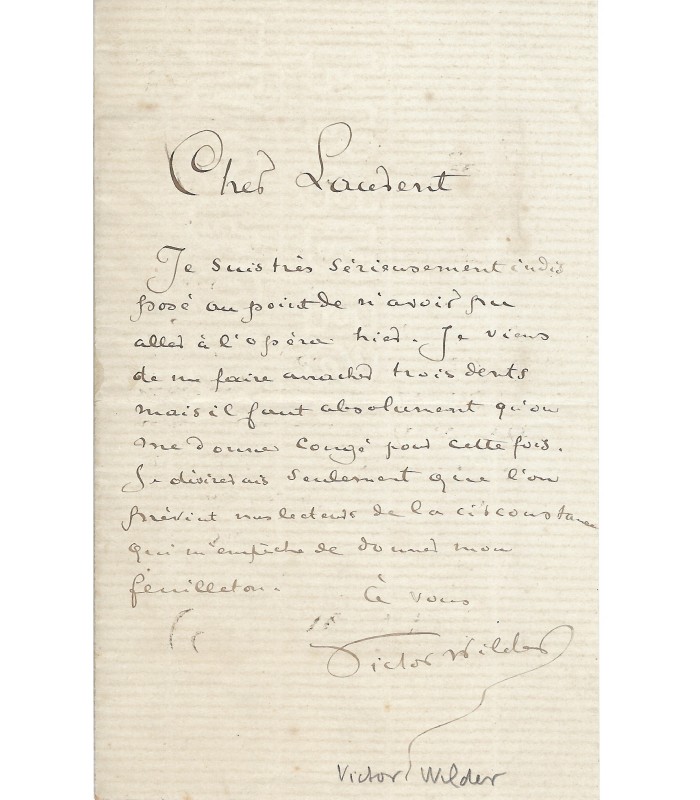 Cher Laurent
Je suis très sérieusement indis
posé au point de n'avoir pu
aller à l'opéra hier. Je viens
de me faire arracher trois dents
mais il faut absolument qu'on
me donne congé pour cette fois.
Je désirerais seulement que l'on
prévint nos lecteurs de la circonstance
qui m'empêche de donner mon
feuilleton. À vous
Victor Wilder
Victor Wilder